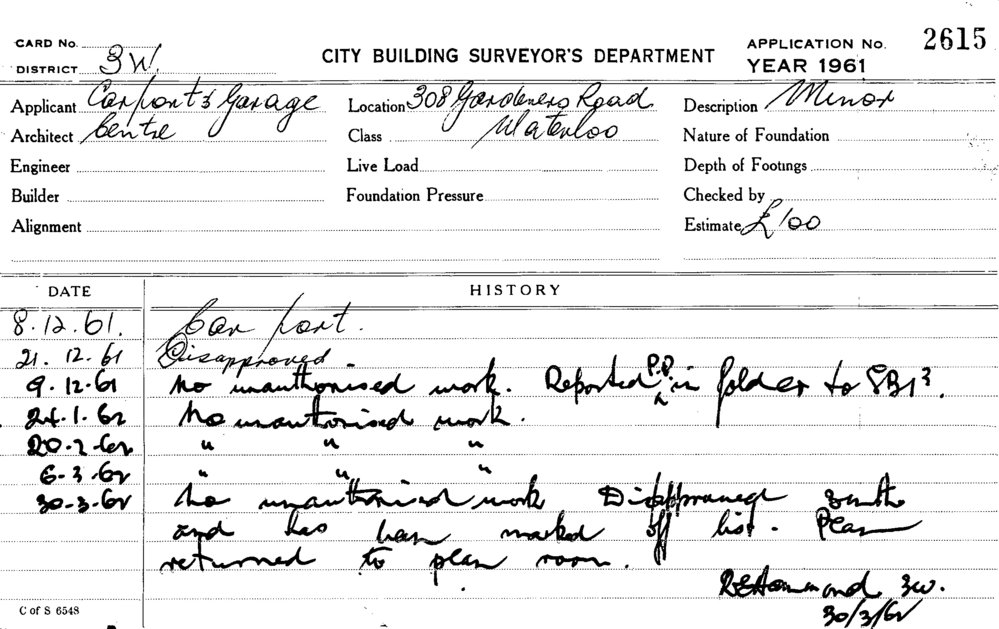 CARD No.
CITY BUILDING SURVEYOR'S DEPARTMENT
APPLICATION No. 2615
DISTRICT 3W.
YEAR 1961
Applicant Carport & Garage
Location 308 Gardeners Road
Description Minor
Architect Centre
Class Waterloo
Nature of Foundation
Engineer
Live Load
Depth of Footings
Builder
Foundation Pressure
Checked by
Alignment
Estimate £100
DATE
HISTORY
8.12.61. Car port.
21.12.61 Disapproved
9.12.61 No unauthorised work. Reported P.P. in folder to
24.1.62 No unauthorised work.
20-2-62 " " "
6-3-62 " " "
30-3-62 No unauthorised work Disapproved
and has been marked off list. Plan
returned to plan room.
3W.
30/3/62
C of S 6548